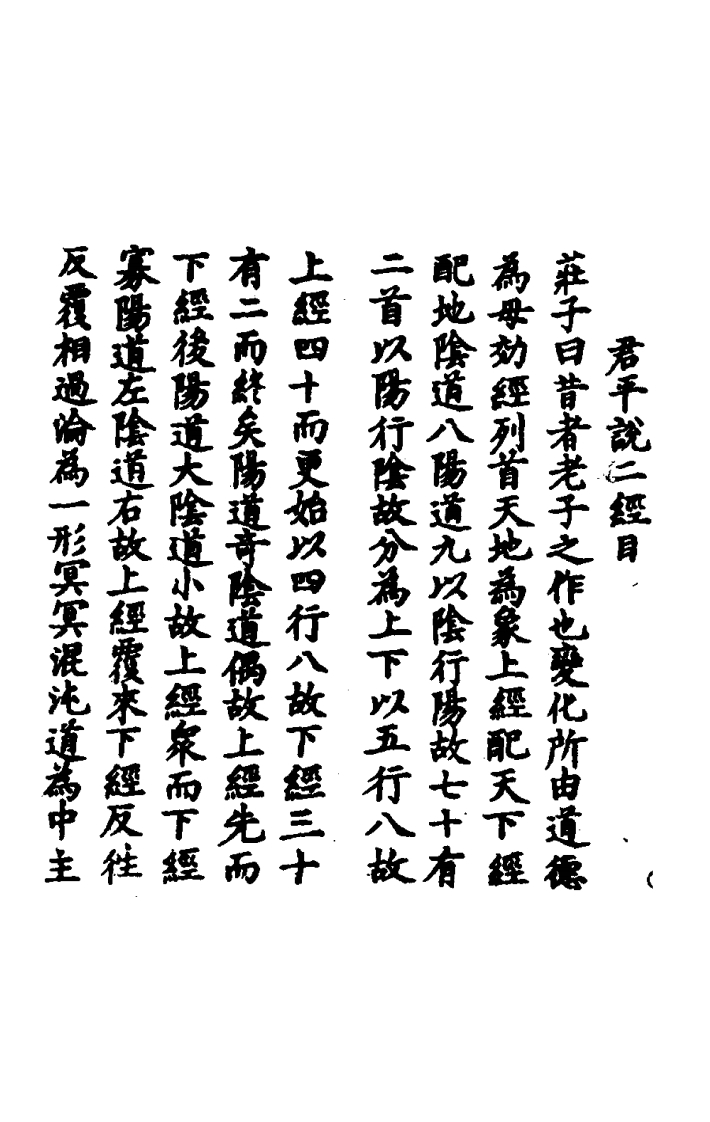 君平說二經目
莊子曰昔者老子之作也變化所由道德
為母効經列首天地為象上經配天下經
配地陰道八陽道九以陰行陽故七十有
二首以陽行陰故分為上下以五行八故
上經四十而更始以四行八故下經三十
有二而終矣陽道奇陰道偶故上經先而
下經後陽道大陰道小故上經眾而下經
寡陽道左陰道右故上經覆來下經反往
反覆相過淪為一形冥冥混沌道為中主